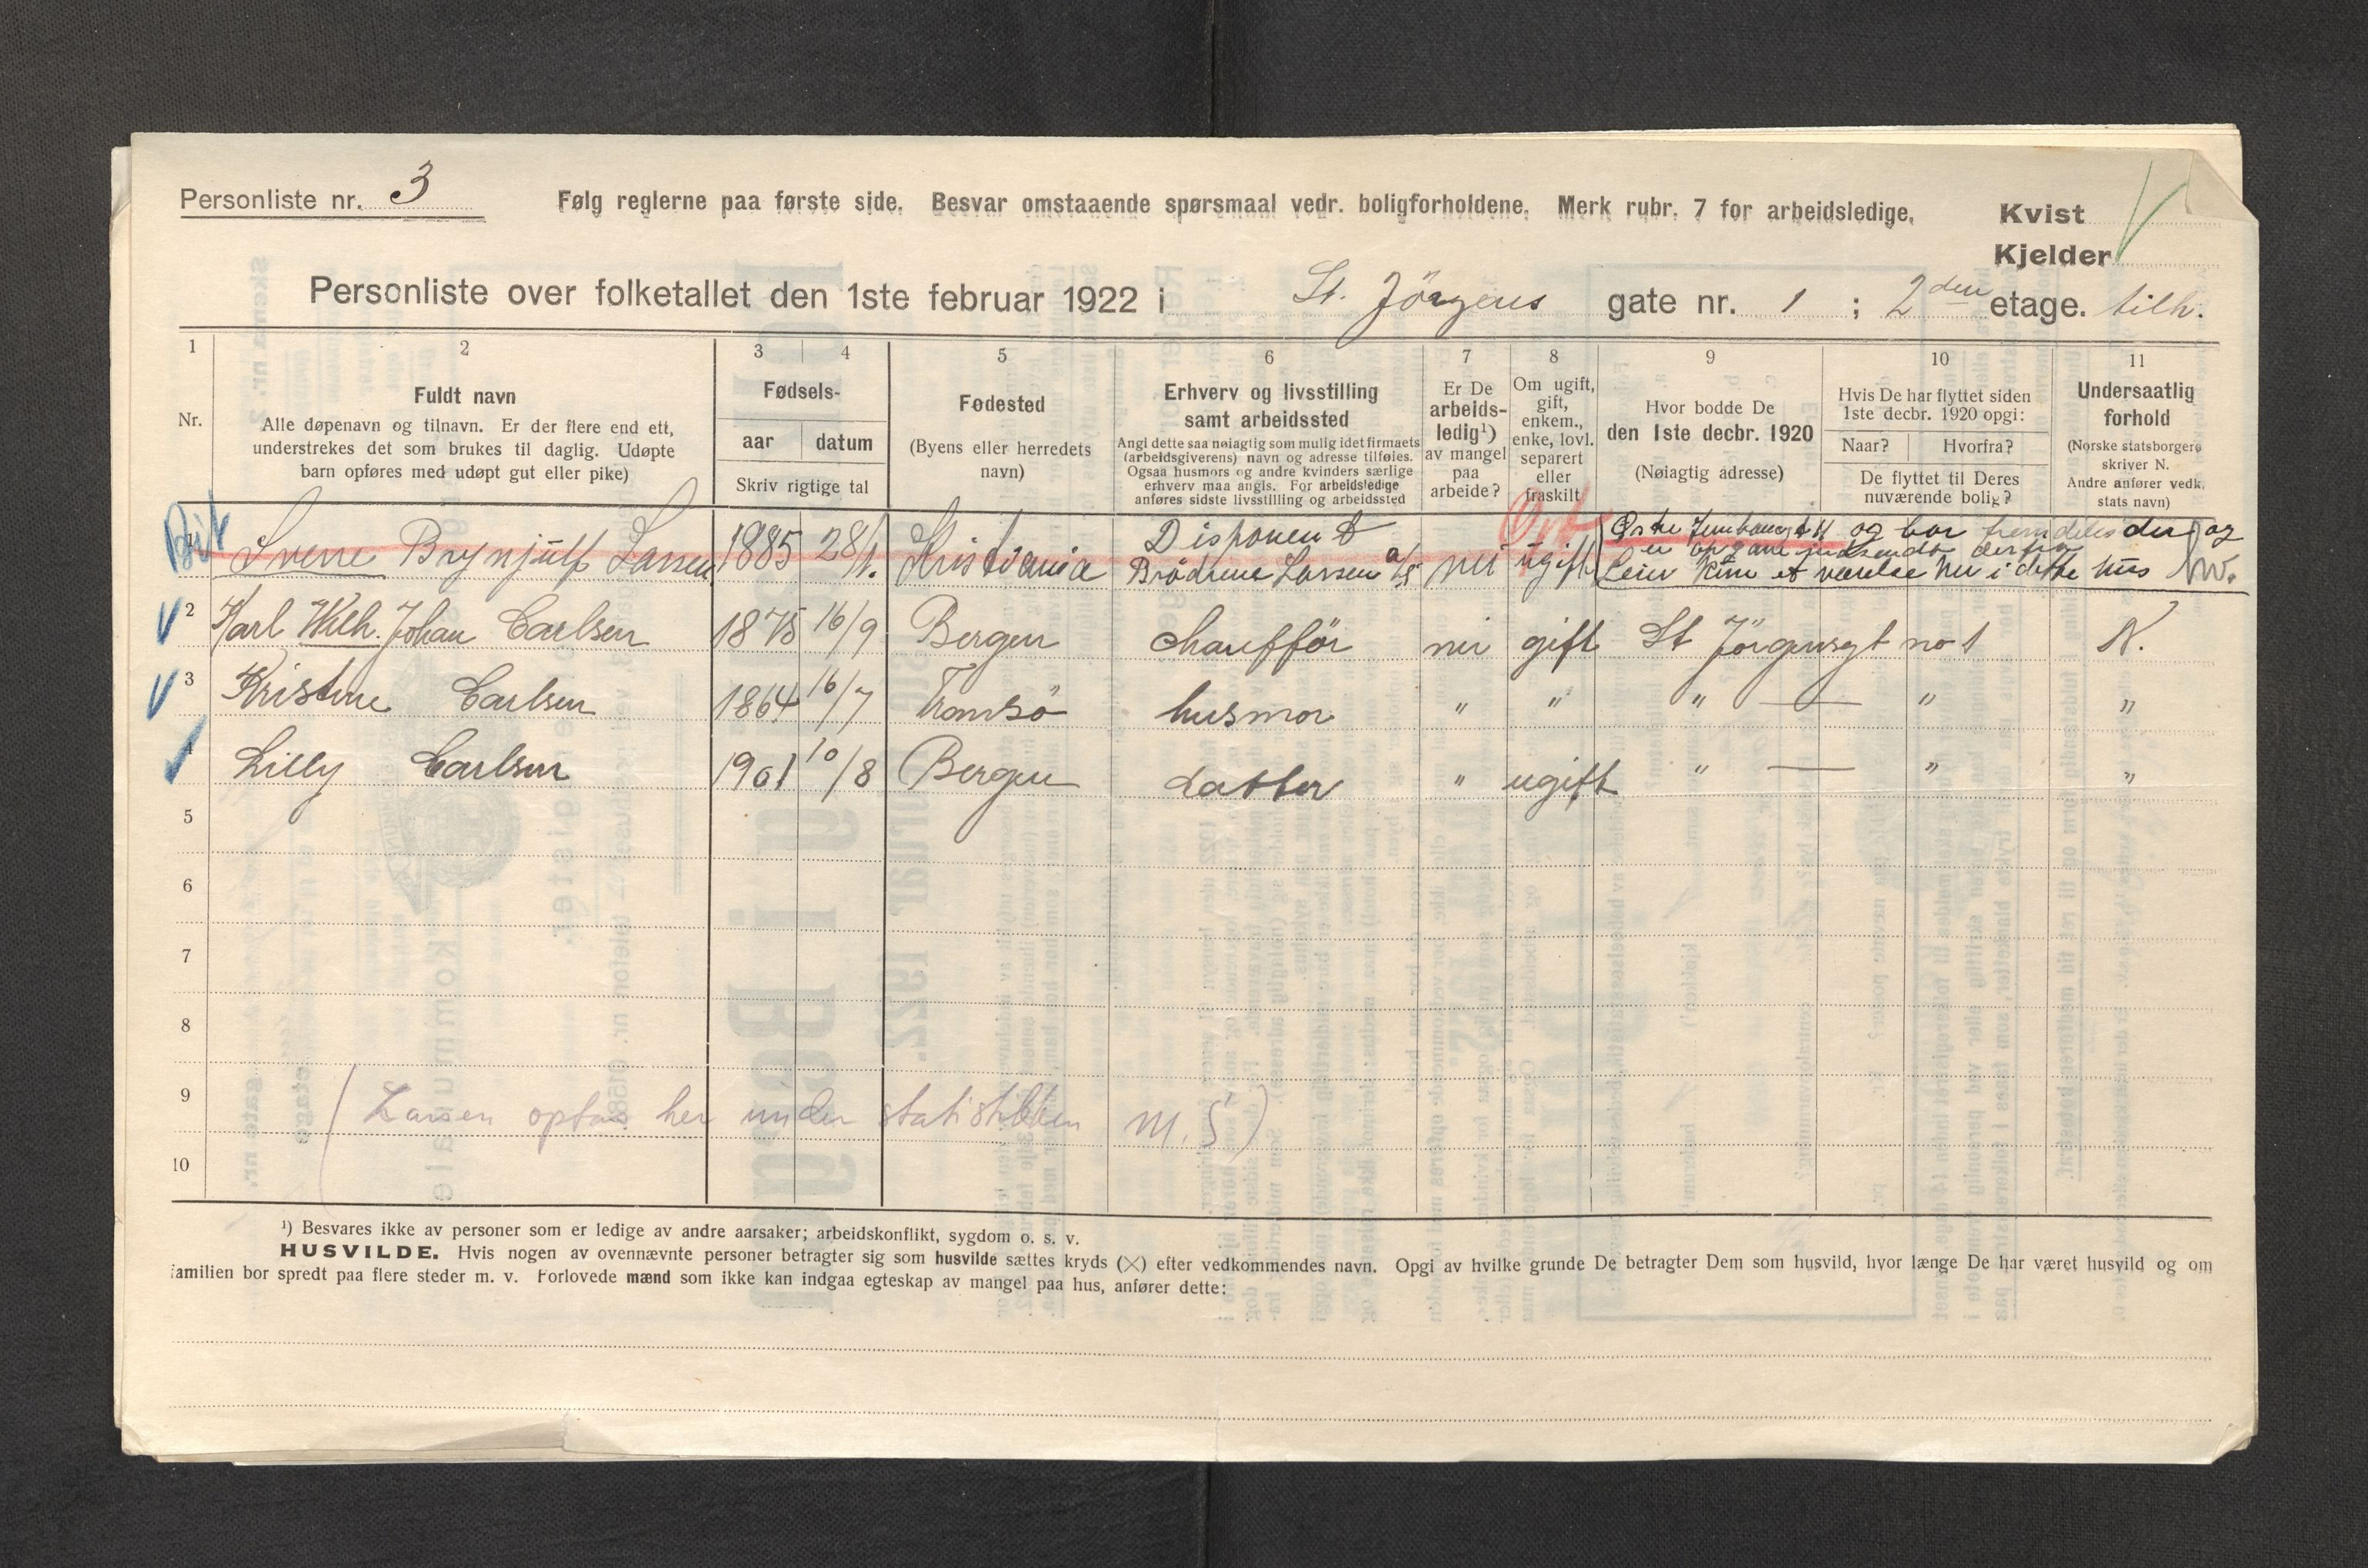 Personliste nr. 3
Følg reglerne paa første side. Besvar omstaaende spørsmaal vedr. boligforholdene. Merk rubr. 7 for arbeidsledige.
Kvist
Kjelder
Personliste over folketallet den 1ste februar 1922 i St. Jörgens gate nr. 1 ; 2den etage. tilh.
1 2 3 4 5 6 7 8 9 10 11
Nr.
Fuldt navn
Alle døpenavn og tilnavn. Er der flere end ett,
understrekes det som brukes til daglig. Udøpte
barn opføres med udøpt gut eller pike)
Fødsels-
aar datum
Skriv rigtige tal
Fødested
(Byens eller herredets
navn)
Erhverv og livsstilling
samt arbeidssted
Angi dette saa nøiagtig som mulig idet firmaets
(arbeidsgiverens) navn og adresse tilføies.
Ogsaa husmors og andre kvinders særlige
erhverv maa angis. For arbeidsledige
anføres sidste livsstilling og arbeidssted
Er De
arbeids-
ledig¹)
av mangel
paa
arbeide?
Om ugift,
gift,
enkem.,
enke, lovl.
separert
eller
fraskilt
Hvor bodde De
den 1ste decbr. 1920
(Nøiagtig adresse)
Hvis De har flyttet siden
1ste decbr. 1920 opgi:
Naar? Hvorfra?
De flyttet til Deres
nuværende bolig?
Undersaatlig
forhold
(Norske statsborgere
skriver N.
Andre anfører vedk.
stats navn)
1 Sverre Brynjulf Larsen 1885 28/1. Kristiania Disponent
Brödrene Larsen a/s nei ugift
og bor fremdeles der og
et værelse her i dette hus N.
2 Karl Wilh. Johan Carlsen 1875 16/9 Bergen chaufför nei gift St Jörgensgt no 1 N.
3 Kristine Carlsen 1864 16/7 Tromsö husmor " " " — " "
4 Lilly Carlsen 1901 10/8 Bergen datter " ugift " — " "
5
6
7
8
9 (Larsen optas her under statistikken M. S)
10
¹) Besvares ikke av personer som er ledige av andre aarsaker; arbeidskonflikt, sygdom o. s. v.
HUSVILDE. Hvis nogen av ovennævnte personer betragter sig som husvilde sættes kryds (×) efter vedkommendes navn. Opgi av hvilke grunde De betragter Dem som husvild, hvor længe De har været husvild og om
familien bor spredt paa flere steder m. v. Forlovede mænd som ikke kan indgaa egteskap av mangel paa hus, anfører dette: